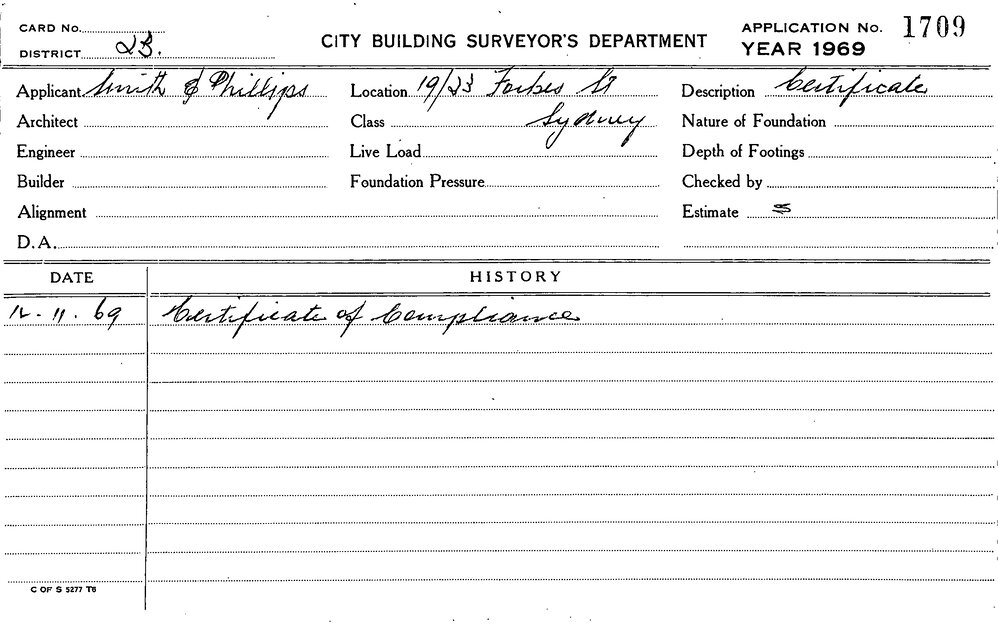 CARD No.
DISTRICT 2B.
CITY BUILDING SURVEYOR'S DEPARTMENT
APPLICATION No. 1709
YEAR 1969
Applicant Smith & Phillips Location 19/23 Forbes St Description Certificate
Architect Class Sydney Nature of Foundation
Engineer Live Load Depth of Footings
Builder Foundation Pressure Checked by
Alignment Estimate $
D.A.
DATE HISTORY
12.11.69 Certificate of Compliance
C OF S 5277 T8